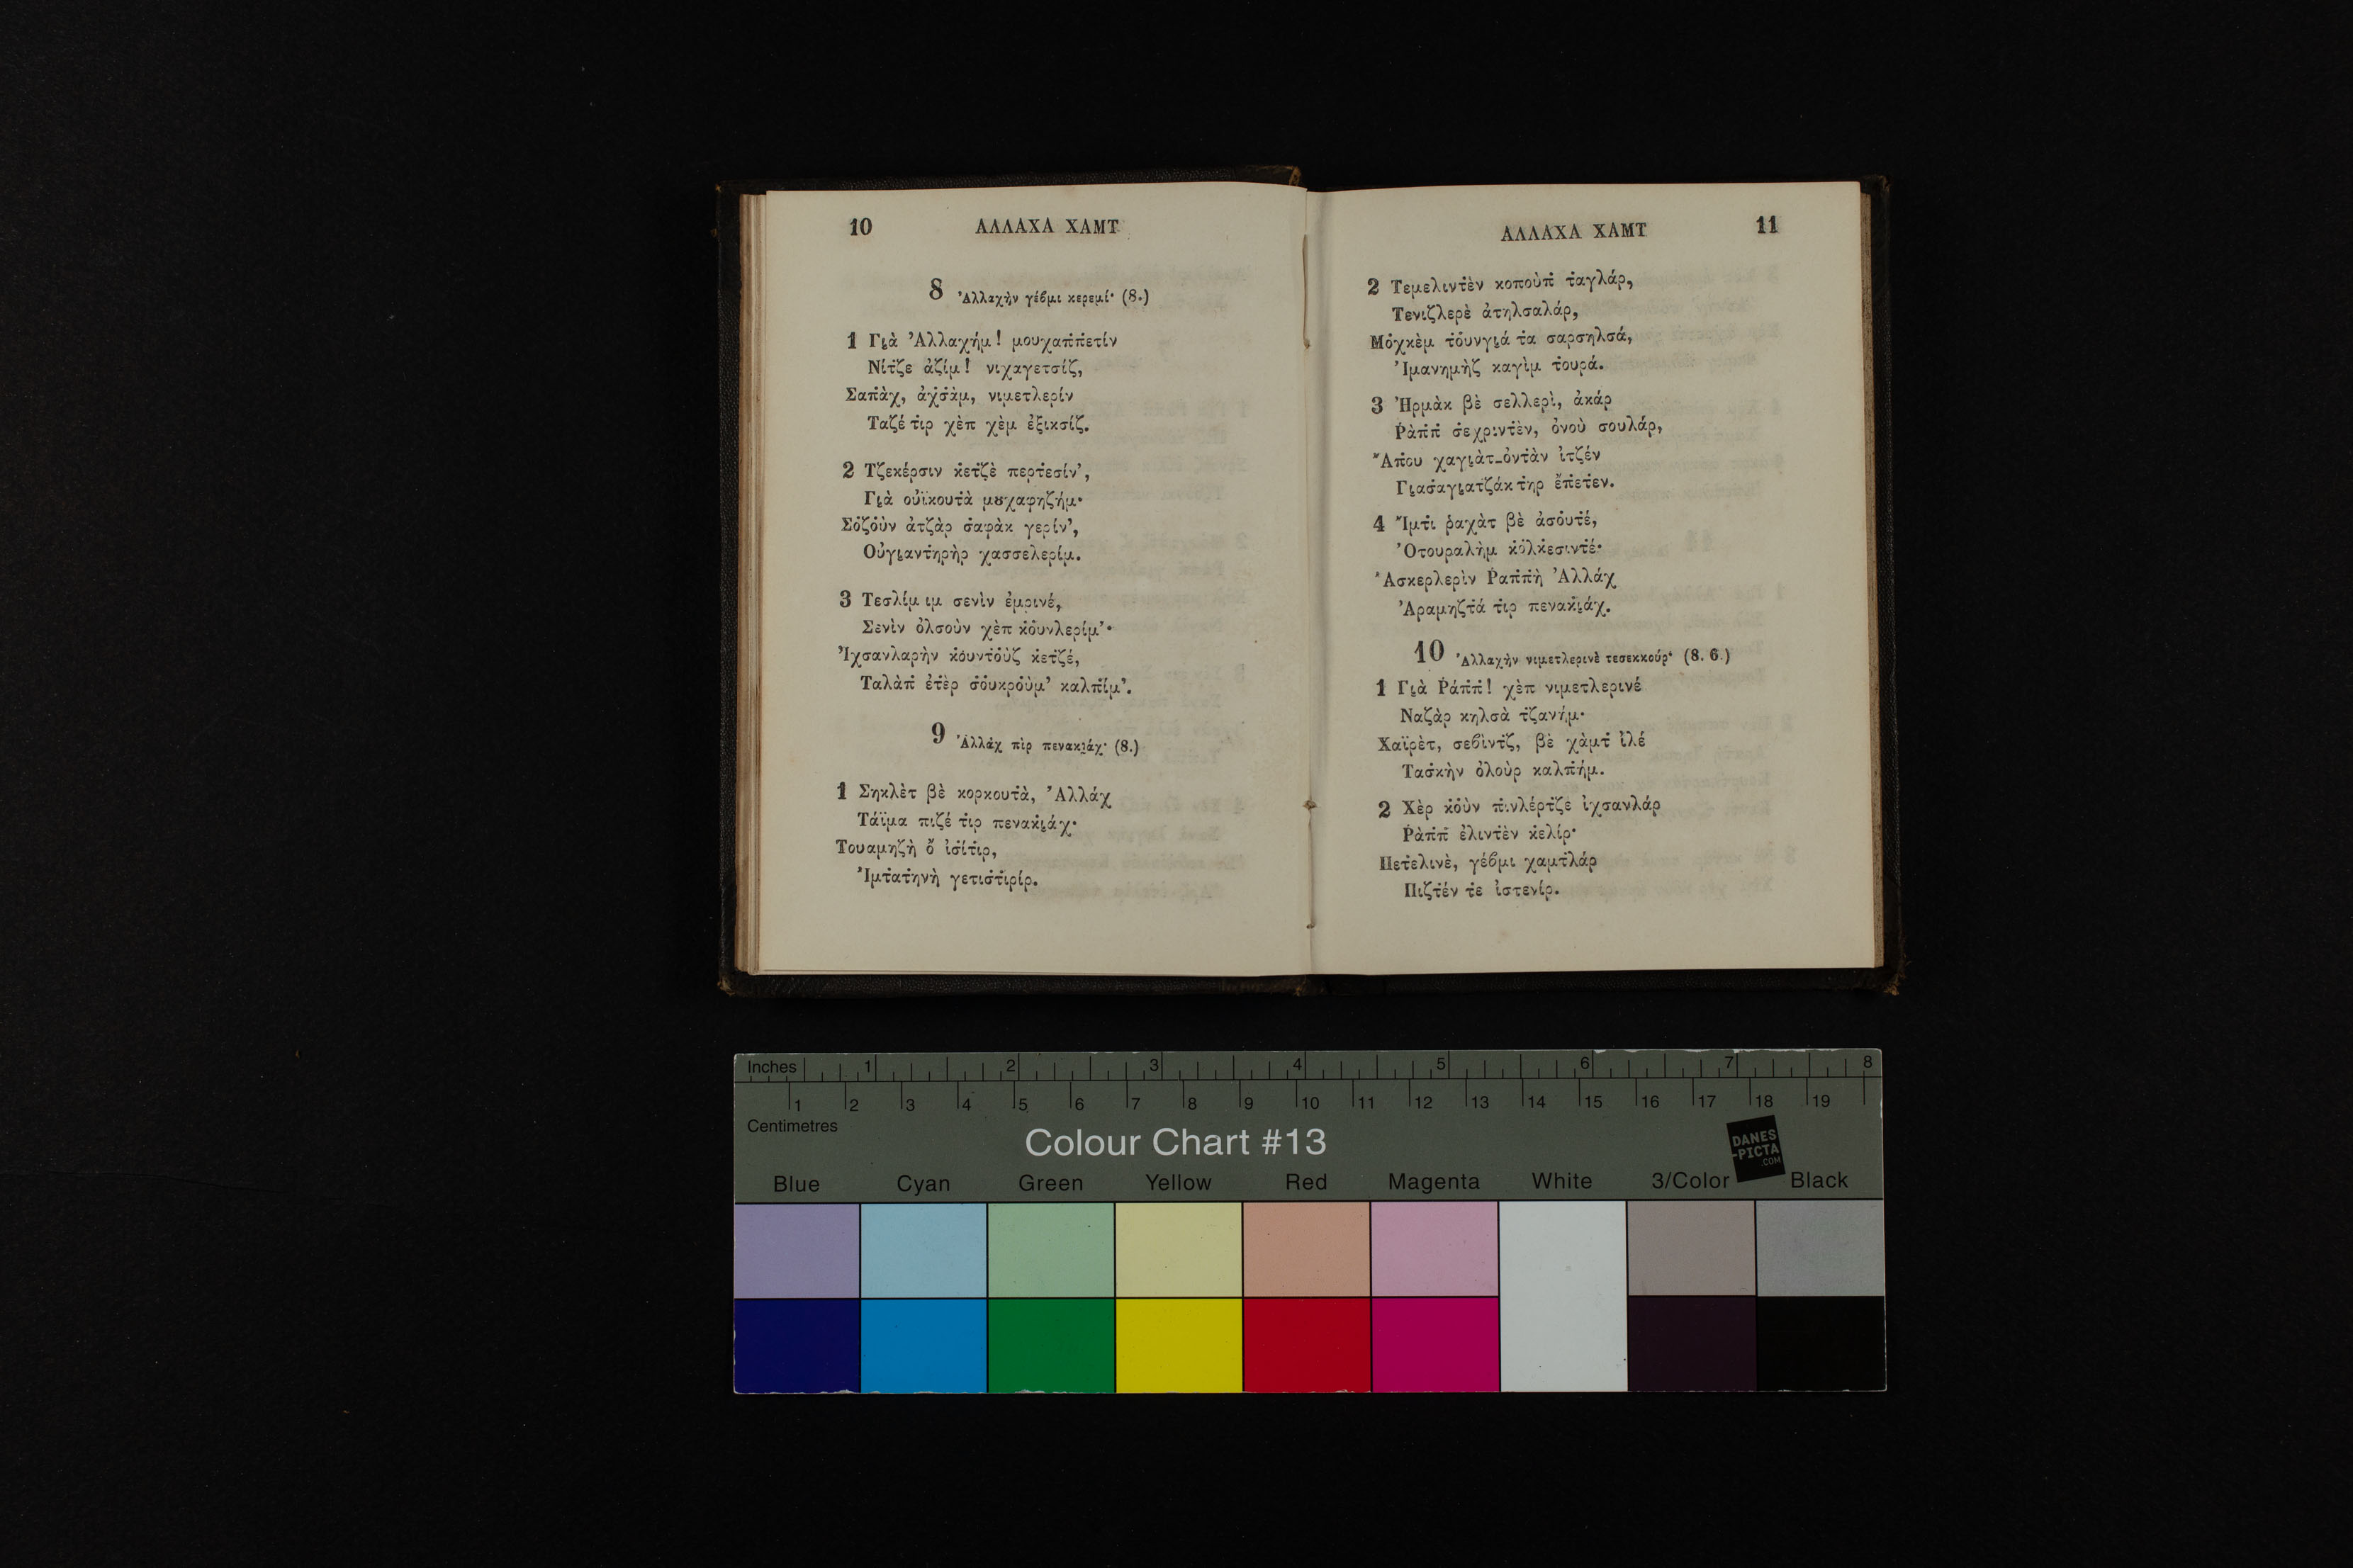 10 ΑΛΛΑΧΑ ΧΑΜΤ
8 Ἀλλαχὴν γέϐμι κερεμί· (8.)
1 Γι̨ὰ Ἀλλαχήμ! μουχαπ̇π̇ετίν
Νίτ̇ζε ἀζίμ! νιχαγετσίζ,
Σαπ̇ὰχ, ἀχσ̇ὰμ, νιμετλερίν
Ταζέ τ̇ιρ χὲπ χὲμ ἐξικσίζ.
2 Τζεκέρσιν κ̇ετζὲ περτ̇εσίν',
Γι̨ὰ οὐϊκουτ̇ὰ μȣχαφηζήμ·
Σὀζὀὺν ἀτζὰρ σ̇αφὰκ γερίν',
Οὐγι̨αντ̇ηρὴρ χασσελερίμ.
3 Τεσλίμ ιμ σενὶν ἐμρινέ,
Σενὶν ὀλσοὺν χὲπ κ̇ὀυνλερίμ'·
Ἰχσανλαρὴν κ̇ὀυντ̇ὀὺζ κ̇ετζέ,
Ταλὰπ̇ ἐτ̇ὲρ σ̇ὀυκρὀὺμ' καλπ̇ίμ'.
9 Ἀλλὰχ πὶρ πενακι̨άχ· (8.)
1 Σηκλὲτ βὲ κορκουτ̇ὰ, Ἀλλάχ
Τάϊμα πιζέ τ̇ιρ πενακ̇ι̨άχ·
Τουαμηζὴ ὄ ἰσ̇ίτ̇ιρ,
Ἰμτ̇ατ̇ηνὴ γετισ̇τ̇ιρίρ.
ΑΛΛΑΧΑ ΧΑΜΤ 11
2 Τεμελιντ̇ὲν κοποὺπ̇ τ̇αγλάρ,
Τενιζλερὲ ἀτηλσαλάρ,
Μὀχκὲμ τ̇ὀυνγι̨ά τ̇α σαρσηλσά,
Ἰμανημὴζ καγὶμ τ̇ουρά.
3 Ἠρμὰκ βὲ σελλερὶ, ἀκάρ
Ῥὰπ̇π̇ σ̇εχριντ̇ὲν, ὀνοὺ σουλάρ,
Ἄπ̇ου χαγι̨ὰτ-ὀντ̇ὰν ἰτζέν
Γι̨ασ̇αγι̨ατζάκ τ̇ηρ ἔπ̇ετ̇εν.
4 Ἴμτ̇ι ῥαχὰτ βὲ ἀσὀυτ̇έ,
Ὀτουραλὴμ κ̇ὀλκ̇εσιντ̇έ·
Ἀσκερλερὶν Ῥαπ̇π̇ὴ Ἀλλάχ
Ἀραμηζτ̇ά τ̇ιρ πενακ̇ι̨άχ.
10 Ἀλλαχὴν νιμετλερινὲ τεσεκκούρ· (8. 6.)
1 Γι̨ὰ Ῥάπ̇π̇! χὲπ νιμετλερινέ
Ναζὰρ κηλσὰ τ̇ζανήμ·
Χαϊρὲτ, σεϐὶντ̇ζ, βὲ χὰμτ̇ ἰλέ
Τασ̇κὴν ὀλοὺρ καλπ̇ήμ.
2 Χὲρ κ̇ὀὺν π̇ινλέρτ̇ζε ἰχσανλάρ
Ῥὰπ̇π̇ ἐλιντ̇ὲν κ̇ελίρ·
Πετ̇ελινὲ, γέϐμι χαμτ̇λάρ
Πιζτ̇έν τ̇ε ἰστενίρ.
Inches 1 2 3 4 5 6 7 8
1 2 3 4 5 6 7 8 9 10 11 12 13 14 15 16 17 18 19
Centimetres
Colour Chart #13
DANES
-PICTA
.COM
Blue Cyan Green Yellow Red Magenta White 3/Color Black